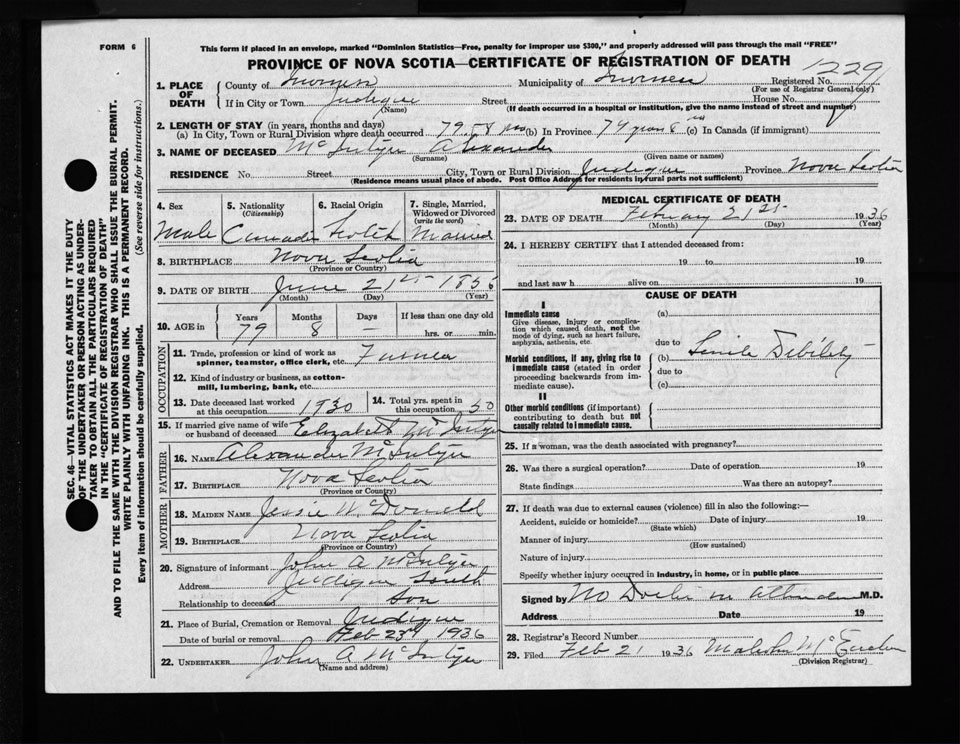 FORM 6
This form if placed in an envelope, marked "Dominion Statistics—Free, penalty for improper use $300," and properly addressed will pass through the mail "FREE"
PROVINCE OF NOVA SCOTIA—CERTIFICATE OF REGISTRATION OF DEATH
1229
1. PLACE OF DEATH
County of Inverness Municipality of Inverness Registered No.
(For use of Registrar General only)
If in City or Town Judique Street House No.
(Name) (If death occurred in a hospital or institution, give the name instead of street and number)
2. LENGTH OF STAY (in years, months and days)
(a) In City, Town or Rural Division where death occurred 79 (b) In Province 79 years 8 (c) In Canada (if immigrant)
3. NAME OF DECEASED McIntyre Alexander
(Surname) (Given name or names)
RESIDENCE No. Street City, Town or Rural Division Judique Province Nova Scotia
(Residence means usual place of abode. Post Office Address for residents in rural parts not sufficient)
SEC. 46—VITAL STATISTICS ACT MAKES IT THE DUTY
OF THE UNDERTAKER OR PERSON ACTING AS UNDER-
TAKER TO OBTAIN ALL THE PARTICULARS REQUIRED
IN THE "CERTIFICATE OF REGISTRATION OF DEATH"
AND TO FILE THE SAME WITH THE DIVISION REGISTRAR WHO SHALL ISSUE THE BURIAL PERMIT.
WRITE PLAINLY WITH UNFADING INK. THIS IS A PERMANENT RECORD.
Every item of information should be carefully supplied. (See reverse side for instructions.)
4. Sex 5. Nationality (Citizenship) 6. Racial Origin 7. Single, Married, Widowed or Divorced (write the word)
Male Canadian Scotch Married
8. BIRTHPLACE Nova Scotia
(Province or Country)
9. DATE OF BIRTH June 21st 1856
(Month) (Day) (Year)
10. AGE in Years Months Days If less than one day old
79 8 — hrs. or min.
OCCUPATION
11. Trade, profession or kind of work as spinner, teamster, office clerk, etc. Farmer
12. Kind of industry or business, as cotton-mill, lumbering, bank, etc.
13. Date deceased last worked at this occupation 1930 14. Total yrs. spent in this occupation 50
15. If married give name of wife or husband of deceased Elizabeth McIntyre
FATHER
16. NAME Alexander McIntyre
17. BIRTHPLACE Nova Scotia
(Province or Country)
MOTHER
18. MAIDEN NAME Jessie McDonald
19. BIRTHPLACE Nova Scotia
(Province or Country)
20. Signature of informant John A McIntyre
Address Judique South
Relationship to deceased Son
21. Place of Burial, Cremation or Removal Judique
Date of burial or removal Feb 23rd 1936
22. UNDERTAKER John A McIntyre
(Name and address)
MEDICAL CERTIFICATE OF DEATH
23. DATE OF DEATH February 21st 1936
(Month) (Day) (Year)
24. I HEREBY CERTIFY that I attended deceased from:
19 to 19
and last saw h alive on 19
CAUSE OF DEATH
I
Immediate cause
Give disease, injury or complication which caused death, not the mode of dying, such as heart failure, asphyxia, asthenia, etc.
(a)
due to
Morbid conditions, if any, giving rise to immediate cause (stated in order proceeding backwards from immediate cause).
(b) Senile Debility
due to
(c)
II
Other morbid conditions (if important) contributing to death but not causally related to immediate cause.
25. If a woman, was the death associated with pregnancy?
26. Was there a surgical operation? Date of operation 19
State findings Was there an autopsy?
27. If death was due to external causes (violence) fill in also the following:—
Accident, suicide or homicide? Date of injury 19
(State which)
Manner of injury
(How sustained)
Nature of injury
Specify whether injury occurred in Industry, in home, or in public place
Signed by No Doctor in attendance M.D.
Address Date 19
28. Registrar's Record Number
29. Filed Feb 21 1936 Malcolm McEachen
(Division Registrar)